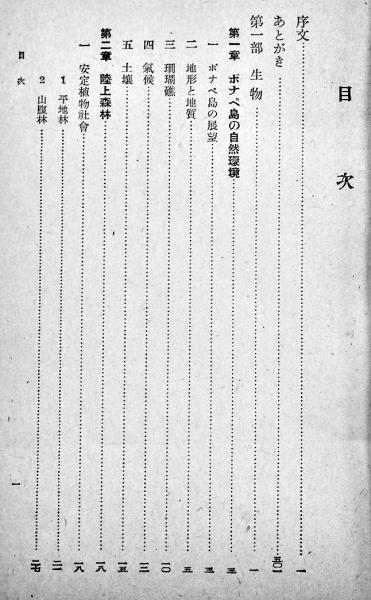 目次
序文……一
あとがき……五〇一
第一部 生物……一
第一章 ポナペ島の自然環境……三
一 ポナペ島の展望……三
二 地形と地質……五
三 珊瑚礁……一〇
四 氣候……一三
五 土壤……一五
第二章 陸上森林……一八
一 安定植物社會……一八
1 平地林……二一
2 山腹林……二七
目次
一